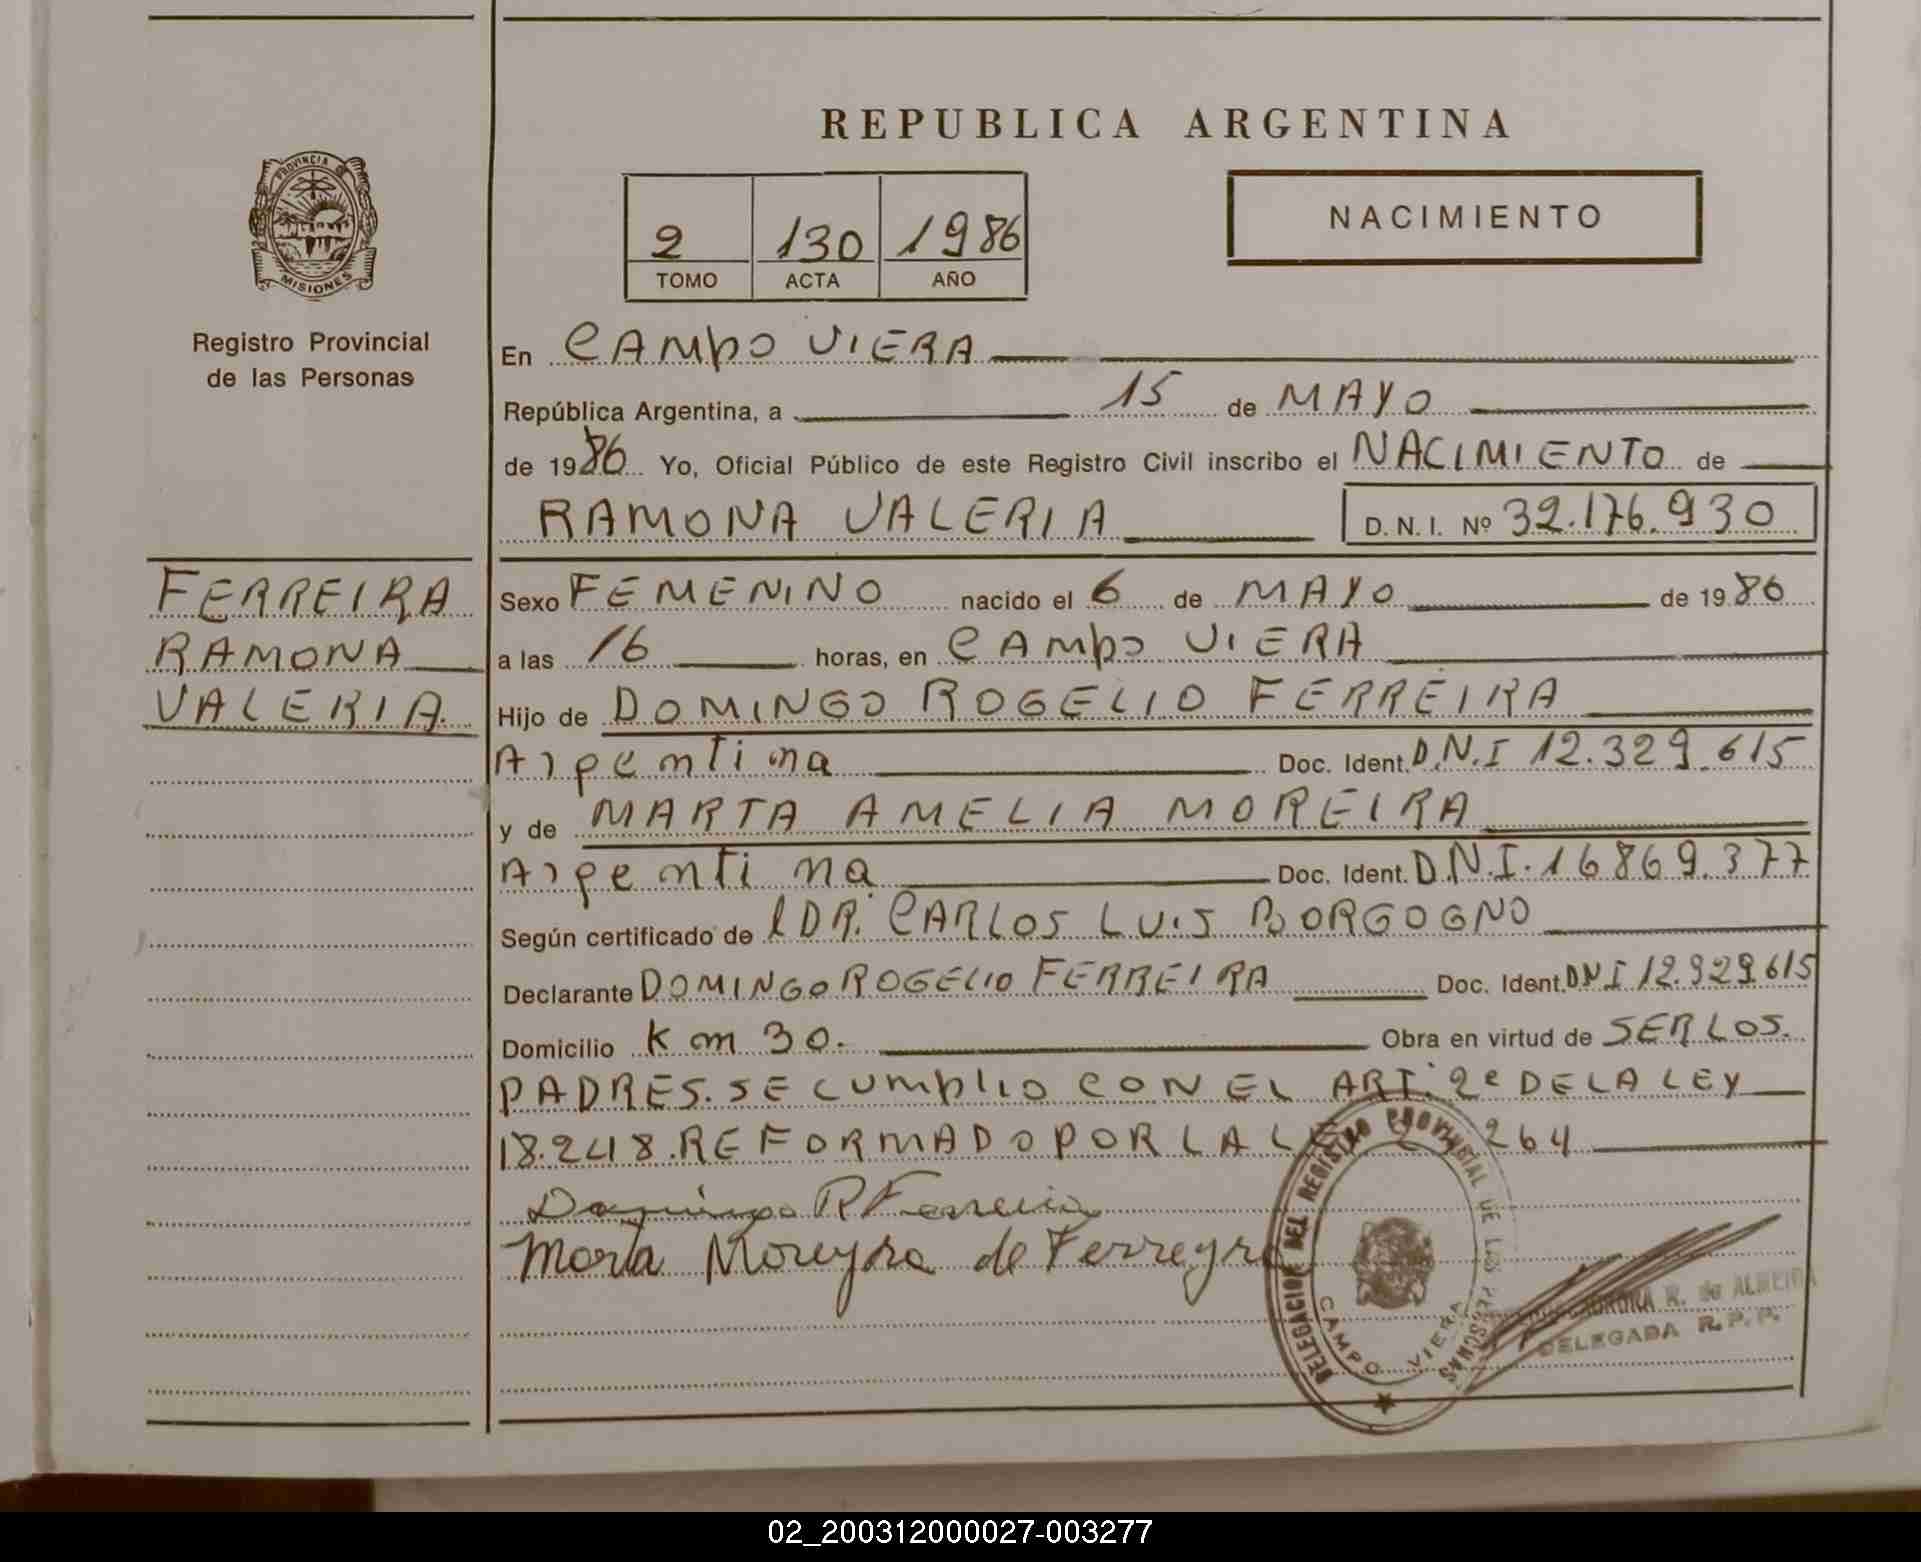 REPUBLICA ARGENTINA
PROVINCIA DE
MISIONES
Registro Provincial
de las Personas
2 130 1986
TOMO ACTA AÑO
NACIMIENTO
En CAMPO VIERA
República Argentina, a 15 de MAYO
de 1986 Yo, Oficial Público de este Registro Civil inscribo el NACIMIENTO de
RAMONA VALERIA D.N.I. Nº 32.176.930
FERREIRA
RAMONA
VALERIA.
Sexo FEMENINO nacido el 6 de MAYO de 1986
a las 16 horas, en CAMPO VIERA
Hijo de DOMINGO ROGELIO FERREIRA
Argentina Doc. Ident. D.N.I 12.329.615
y de MARTA AMELIA MOREIRA
Argentina Doc. Ident. D.N.I. 16869.377
Según certificado de DR. CARLOS LUIS BORGOGNO
Declarante DOMINGO ROGELIO FERREIRA Doc. Ident. DNI 12.329.615
Domicilio Km 30. Obra en virtud de SER LOS.
PADRES. SE CUMPLIO CON EL ART. 2º DE LA LEY
18.248. REFORMADO POR LA 264
Domingo R Ferreira
Marta Moreyra de Ferreyra
DELEGACION DEL REGISTRO PROVINCIAL DE LAS PERSONAS
CAMPO VIERA
R. de ALMEIDA
DELEGADA R.P.P.
02_200312000027-003277